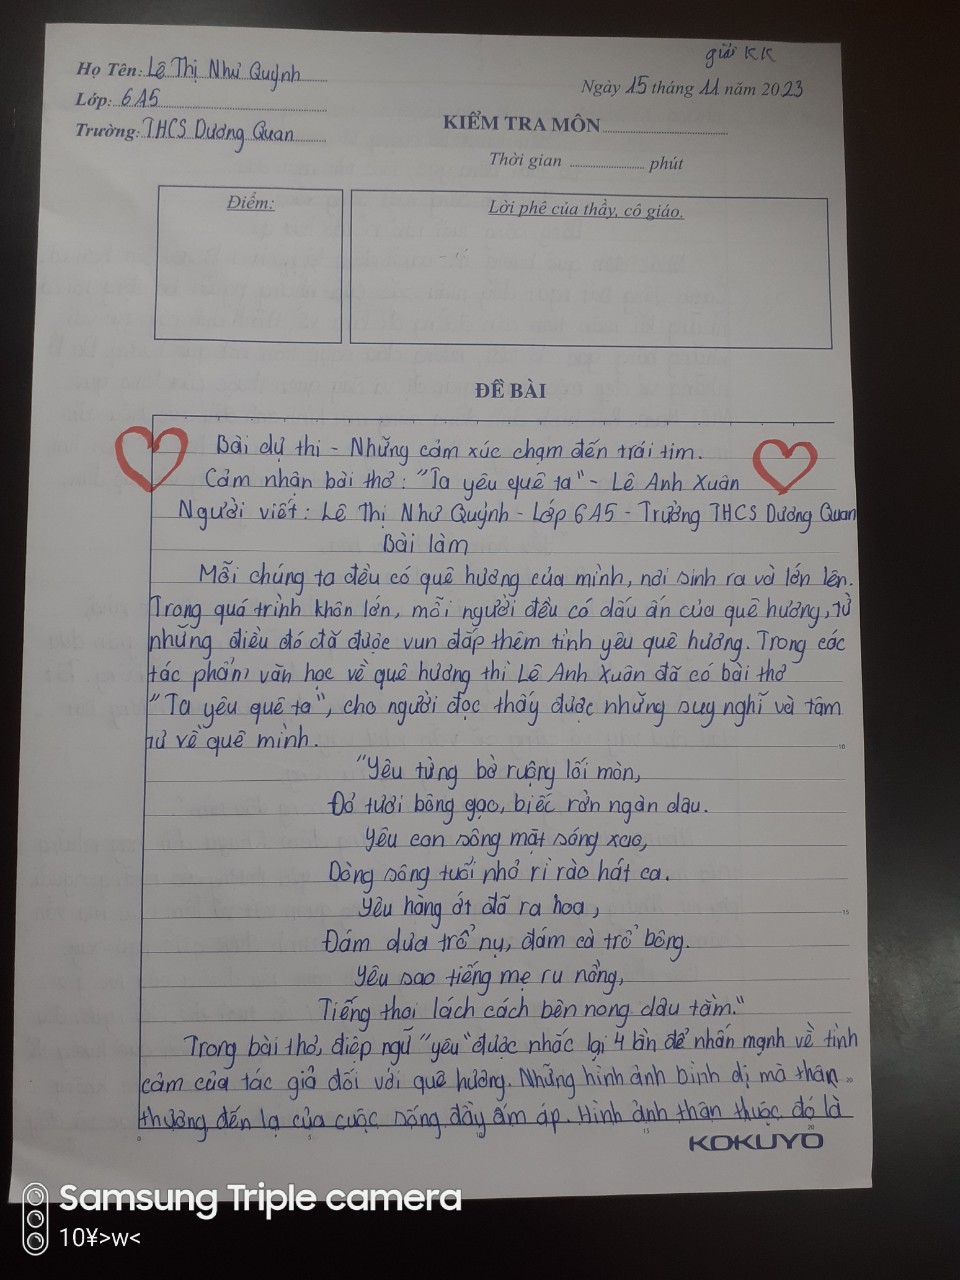 giải KK
Họ Tên: Lê Thị Như Quỳnh
Ngày 15 tháng 11 năm 2023
Lớp: 6A5
KIỂM TRA MÔN
Trường: THCS Dương Quan
Thời gian phút
Điểm:
Lời phê của thầy, cô giáo.
ĐỀ BÀI
Bài dự thi - Những cảm xúc chạm đến trái tim.
Cảm nhận bài thơ: "Ta yêu quê ta" - Lê Anh Xuân
Người viết: Lê Thị Như Quỳnh - Lớp 6A5 - Trường THCS Dương Quan
Bài làm
Mỗi chúng ta đều có quê hương của mình, nơi sinh ra và lớn lên.
Trong quá trình khôn lớn, mỗi người đều có dấu ấn của quê hương, từ
những điều đó đã được vun đắp thêm tình yêu quê hương. Trong các
tác phẩm văn học về quê hương thì Lê Anh Xuân đã có bài thơ
"Ta yêu quê ta", cho người đọc thấy được những suy nghĩ và tâm
tư về quê mình.
"Yêu từng bờ ruộng lối mòn,
Đỏ tươi bông gạo, biếc rờn ngàn dâu.
Yêu con sông mặt sóng xao,
Dòng sông tuổi nhỏ rì rào hát ca.
Yêu hàng ớt đã ra hoa,
Đám dưa trổ nụ, đám cà trổ bông.
Yêu sao tiếng mẹ ru nồng,
Tiếng thoi lách cách bên nong dâu tằm."
Trong bài thơ, điệp ngữ "yêu" được nhắc lại 4 lần để nhấn mạnh về tình
cảm của tác giả đối với quê hương. Những hình ảnh bình dị mà thân
thương đến lạ của cuộc sống đầy ấm áp. Hình ảnh thân thuộc đó là
KOKUYO
Samsung Triple camera
10¥>w<